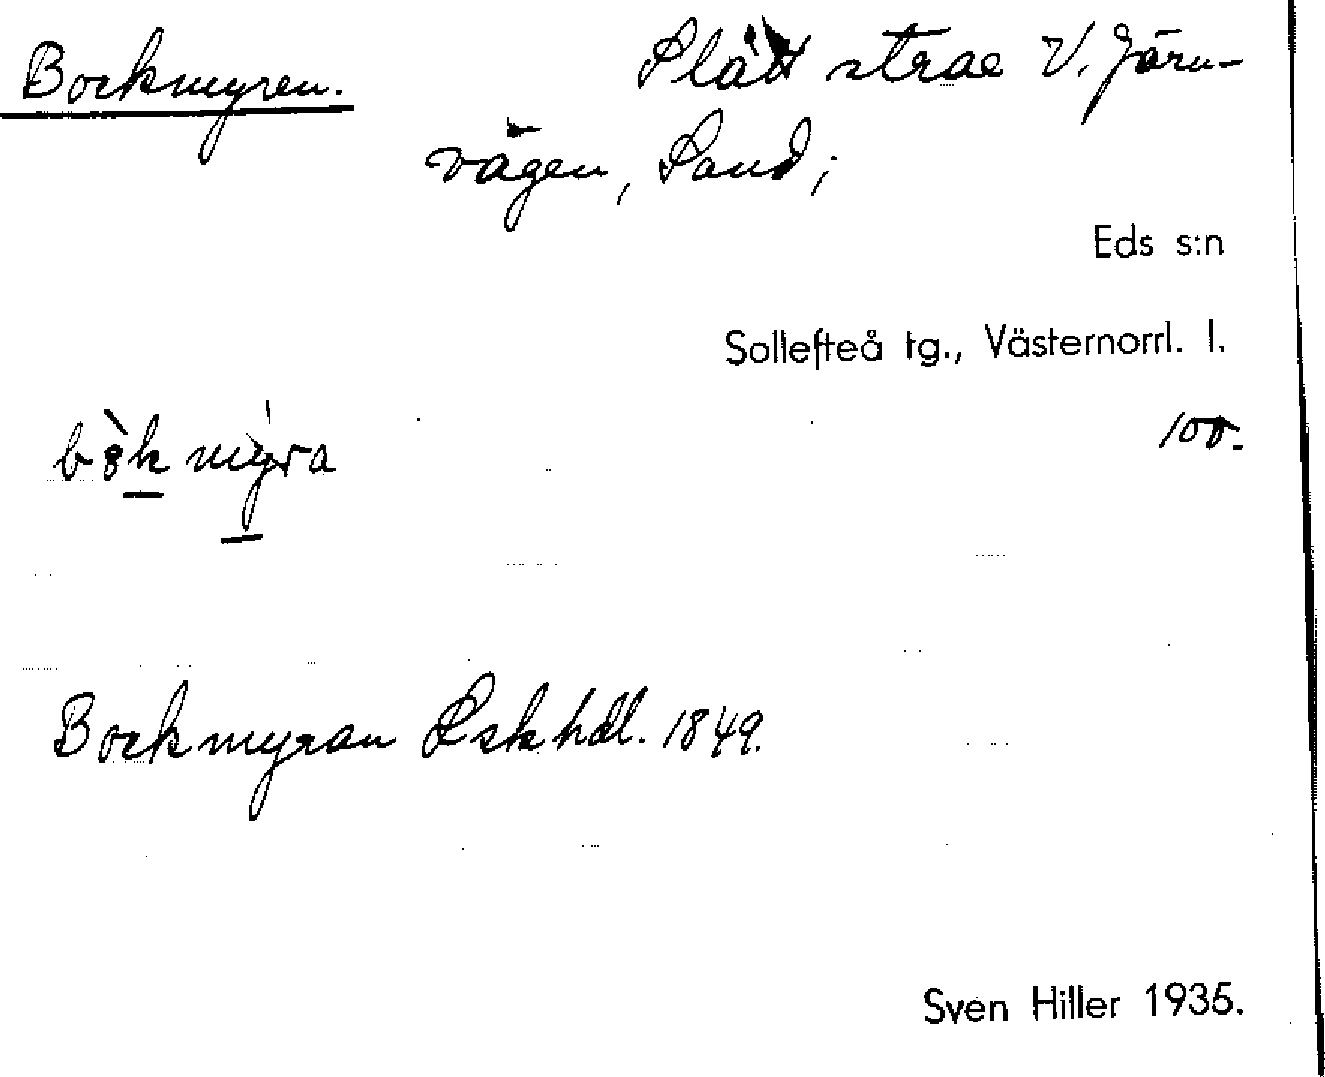 Bockmyren. Slätt strax V. Järn-
vägen, Sand;
Eds s:n
Sollefteå tg., Västernorrl. l.
100.
myra
Bockmyran Lskhdl. 1849.
Sven Hiller 1935.